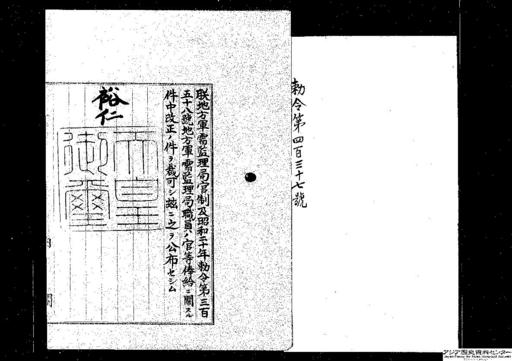 勅令第四百三十七號
朕地方軍需監理局官制及昭和二十年勅令第三百
五十八號地方軍需監理局職員ノ官等俸給ニ關スル
件中改正ノ件ヲ裁可シ茲ニ之ヲ公布セシム
裕仁
天皇
御璽
アジア歴史資料センター